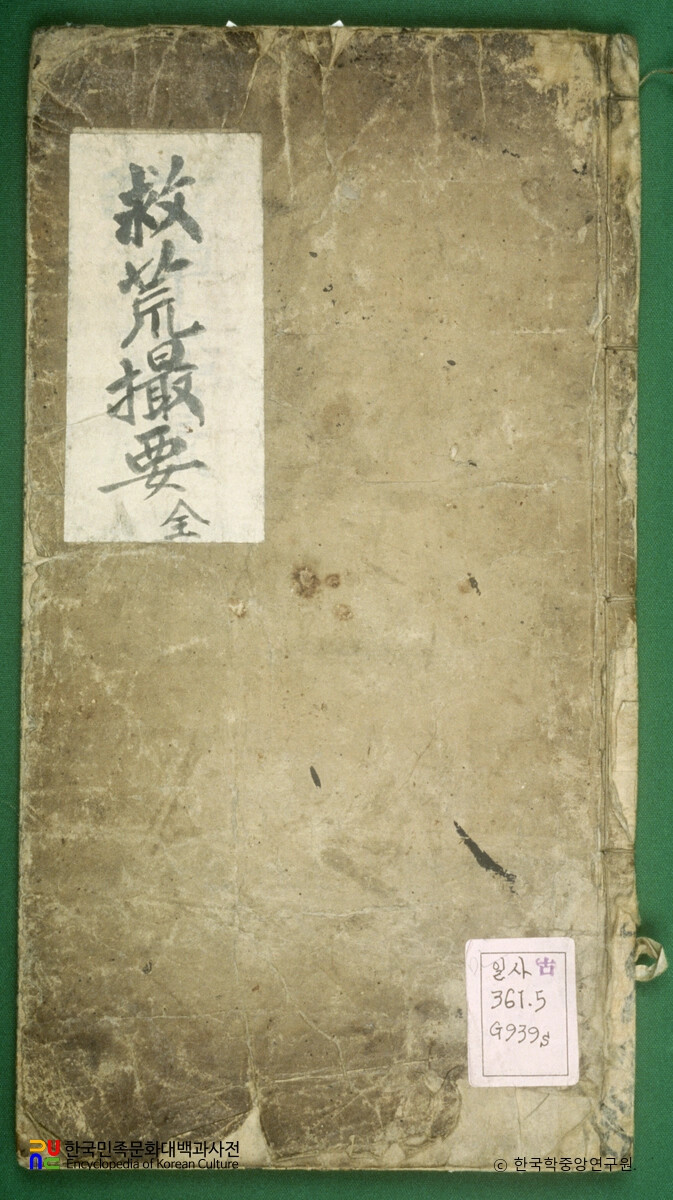 救荒撮要
全
일사 古
361.5
G939s
한국민족문화대백과사전
Encyclopedia of Korean Culture
© 한국학중앙연구원